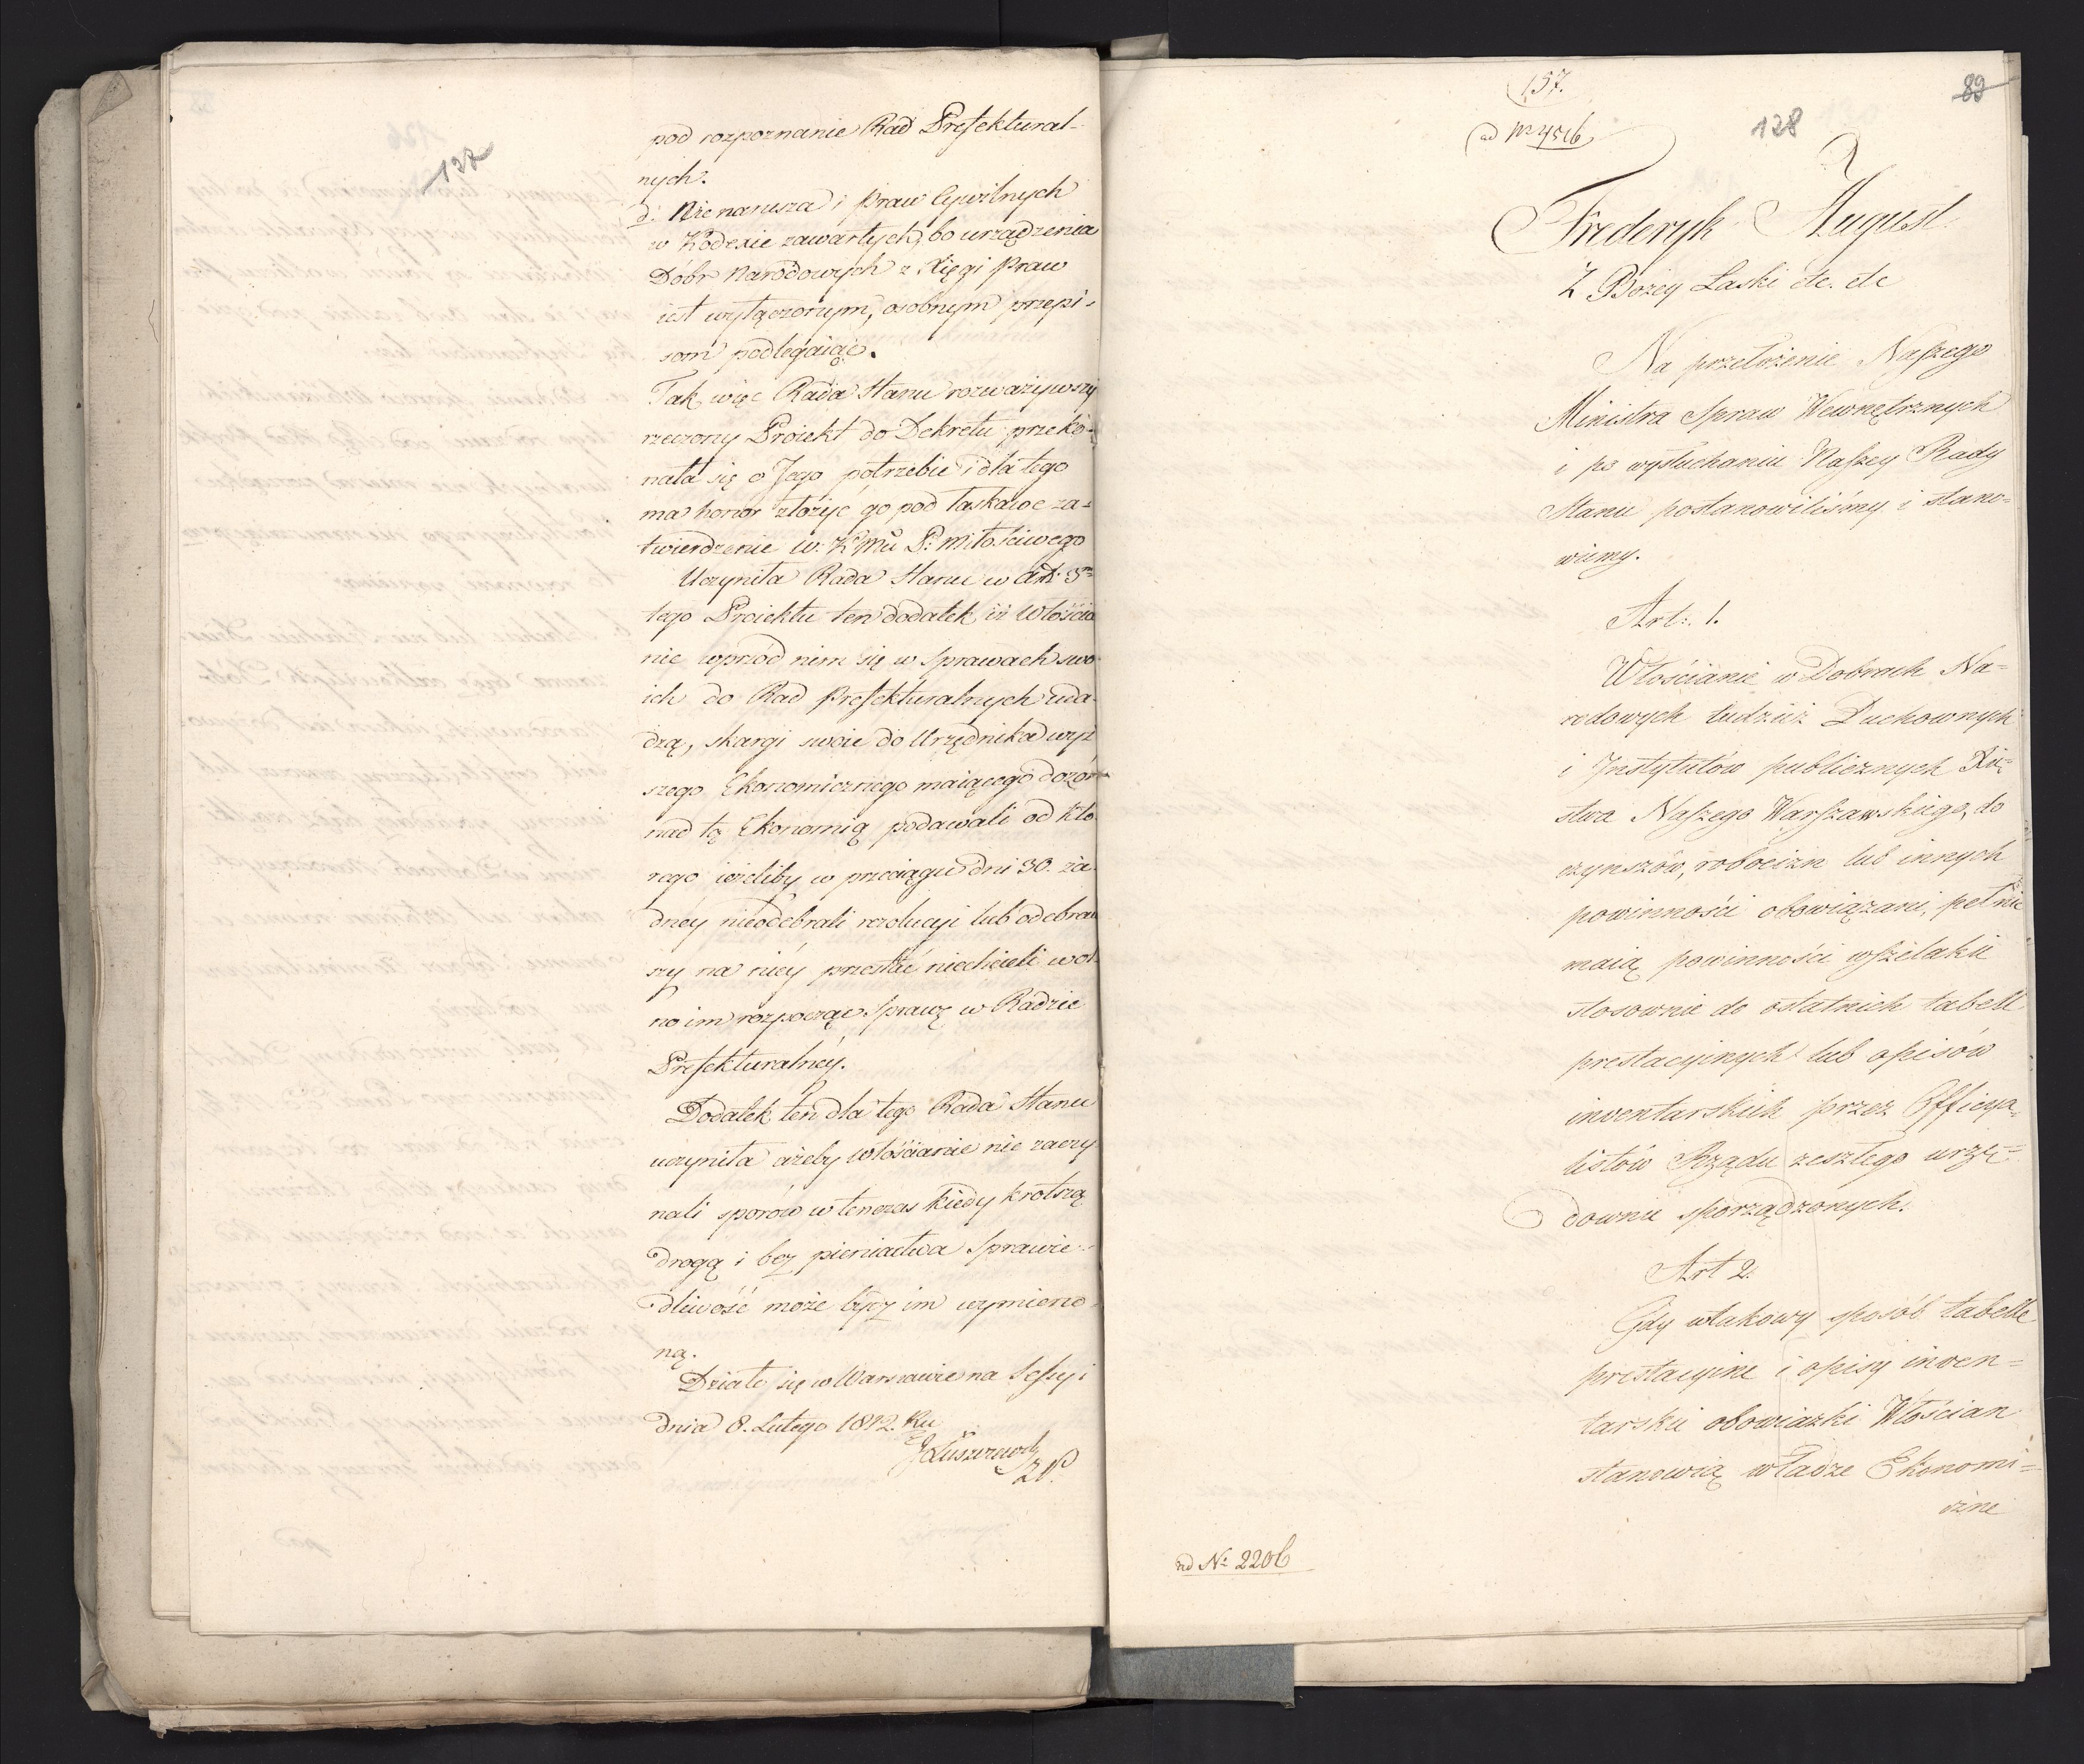 127
pod rozpoznanie Rad Prefektural-
nych.
d. Nie narusza i Praw Cywilnych
w Kodexie zawartych, bo urządzenia
Dóbr Narodowych z Xięgi Praw
iest wyłączonym, osobnym przepi-
som podlegaiąc.
Tak więc Rada Stanu rozważywszy
rzeczony Proiekt do Dekretu przeko-
nała się o Jego potrzebie i dla tego
ma honor złożyć go pod łaskawe za-
twierdzenie W. K Mci P. Miłościwego
Uczyniła Rada Stanu w Art. 3m
tego Proiektu ten dodatek iż Włościa
nie wprzód nim się w sprawach swo
ich do Rad Prefekturalnych uda-
dzą, skargi swoie do Urzędnika wyż
szego Ekonomicznego maiącego dozór
nad tą Ekonomią podawali od któ
rego ieżeliby w przeciągu dni 30. ża
dnéy nieodebrali rezolucyi lub odebraw
szy na niéy przestać niechcieli wol
no im rozpocząć Sprawę w Radzie
Prefekturalnéy.
Dodatek ten dla tego Rada Stanu
uczyniła ażeby włościanie nie zaczy
nali sporów w tenczas kiedy krótszą
drogą i bez pieniactwa Sprawie-
dliwość może bydz im wymierzo
ną.
Działo się w Warszawie na Sessyi
dnia 8. Lutego 1812. Ru
JŁuszczewski
157.
ad Nr 4516
128
89
Frederyk August
Z Bożey Łaski etc. etc
Na przełożenie Naszego
Ministra Spraw Wewnętrznych
i po wysłuchaniu Naszey Rady
Stanu postanowiliśmy i stano-
wiemy.
Art. 1.
Włościanie w Dobrach Na-
rodowych tudzież Duchownych
i Instytutów publicznych Xię-
stwa Naszego Warszawskiego, do
czynszów, robocizn lub innych
powinności obowiązani, pełnić
maią powinności wszelakie
stosownie do ostatnich tabell
prestacyinych lub opisów
inwentarskich przez Officya-
listów Rządu zeszłego urzę-
downie sporządzonych.
Art 2.
Gdy wtakowy sposób tabelle
prestacyine i opisy inwen-
tarskie obowiązki Włościan
stanowią władze Ekonomi-
czne
ad No 2206